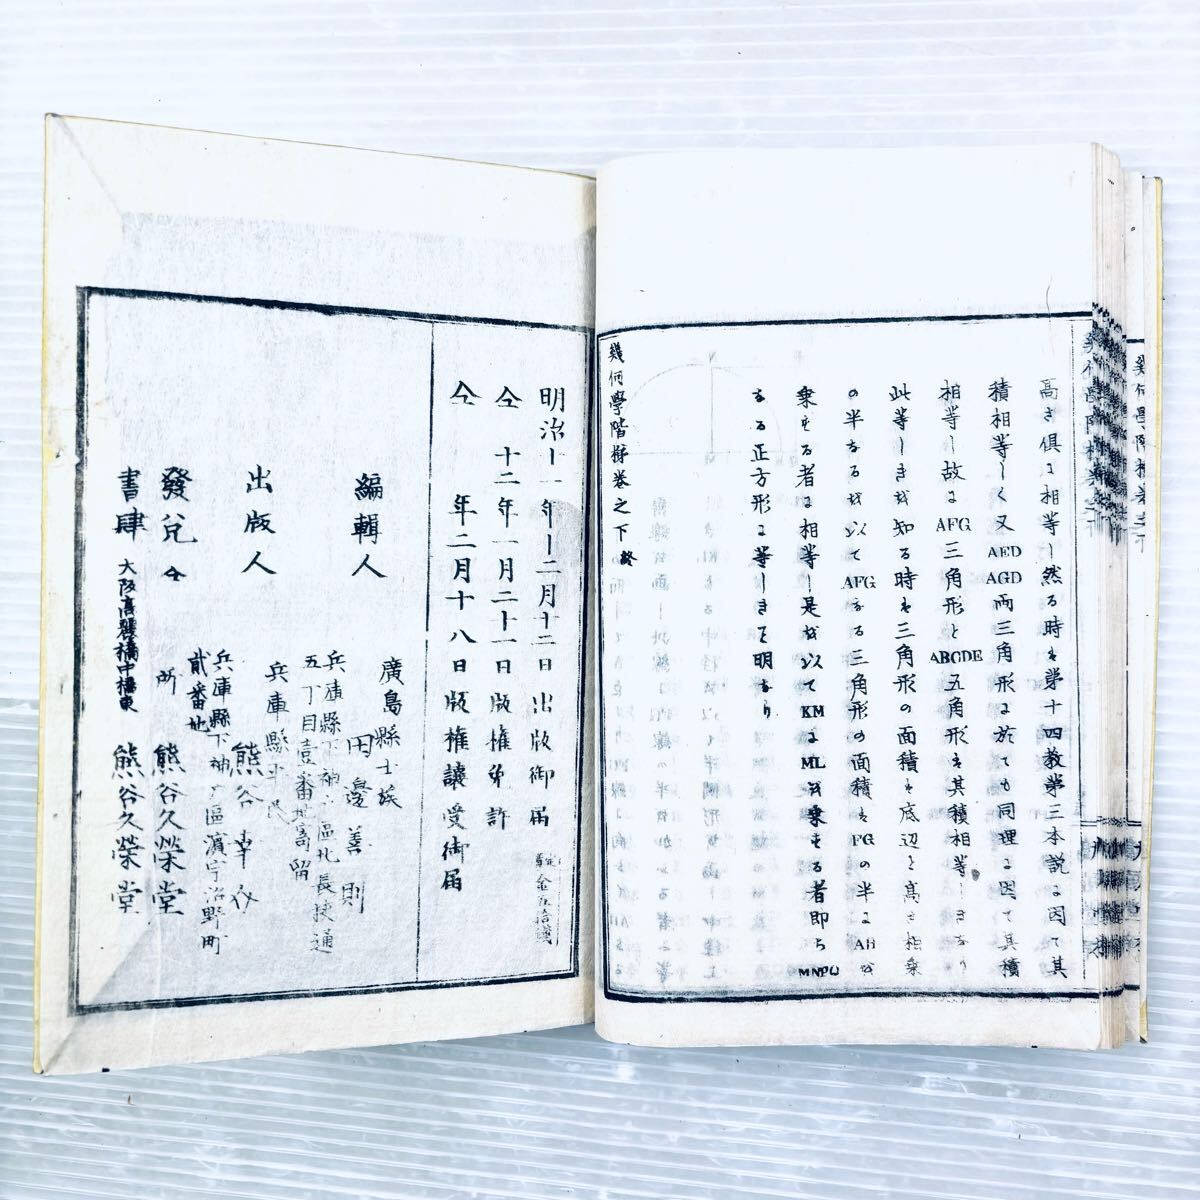 高さ俱に相等し然る時は第十四教第三本説に因て其
積相等しく又AED AGD両三角形に於ても同理に因て其積
相等し故にAFG三角形とABCDE五角形は其積相等しきなり
此等しきを知る時は三角形の面積は底辺と高さ相乗
の半なるを以てAFGなる三角形の面積はFGの半にAHを
乗ずる者に相等し是を以てKMにMLを乗ずる者即ちMNPQ
なる正方形に等しきを明なり
幾何學階梯巻之下終
明治十一年十二月十二日出版御届
仝 十二年一月二十一日版權免許
仝 年二月十八日版權讓受御届
定價金五拾錢
編輯人
廣島縣士族
田邊善則
兵庫縣下神戸區北長挾通
五丁目壹番地寄留
出版人
兵庫縣平民
熊谷幸介
兵庫縣下神戸區濱宇治野町
貳番地
發兌仝所 熊谷久榮堂
書肆 大阪高麗橋中橋東 熊谷久榮堂